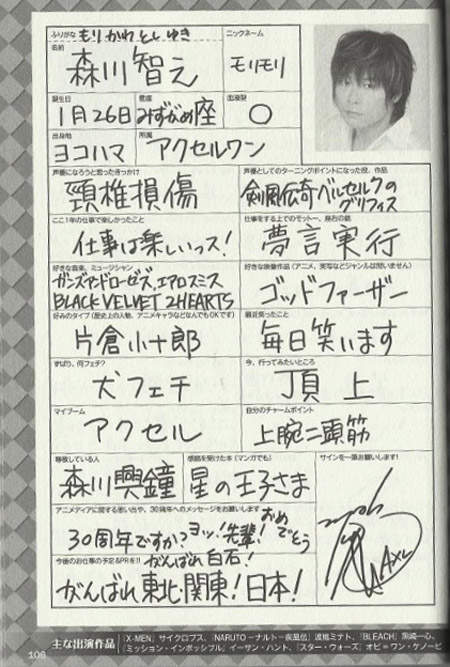 ふりがな もりかわとしゆき
ニックネーム
名前 森川智之
モリモリ
誕生日 1月26日
星座 みずがめ座
血液型 ○
出身地 ヨコハマ
所属 アクセルワン
声優になろうと思ったきっかけ
頸椎損傷
声優としてのターニングポイントになった役、作品
剣風伝奇ベルセルクの
グリフィス
ここ1年の仕事で楽しかったこと
仕事は楽しいっス!
仕事をする上でのモットー、座右の銘
夢言実行
好きな音楽、ミュージシャン
ガンズアンドローゼズ、エアロスミス
BLACK VELVET 2HEARTS
好きな映像作品(アニメ、実写などジャンルは問いません)
ゴッドファーザー
好みのタイプ(歴史上の人物、アニメキャラなどなんでもOKです)
片倉小十郎
最近笑ったこと
毎日笑います
ずばり、何フェチ?
犬フェチ
今、行ってみたいところ
頂上
マイブーム
アクセル
自分のチャームポイント
上腕二頭筋
尊敬している人
森川興鐘
感銘を受けた本(マンガでも)
星の王子さま
サインを一筆お願いします!
アニメディアに関する思い出や、30周年へのメッセージをお願いします
30周年ですか?ヨッ!先輩!おめでとう
今後のお仕事の予定&PRを!!
がんばれ白石!
がんばれ東北・関東!日本!
AXL
主な出演作品
『X-MEN』サイクロプス、『NARUTO-ナルト-疾風伝』波風ミナト、『BLEACH』黒崎一心、
『ミッション・インポッシブル』イーサン・ハント、『スター・ウォーズ』オビ=ワン・ケノービ
106